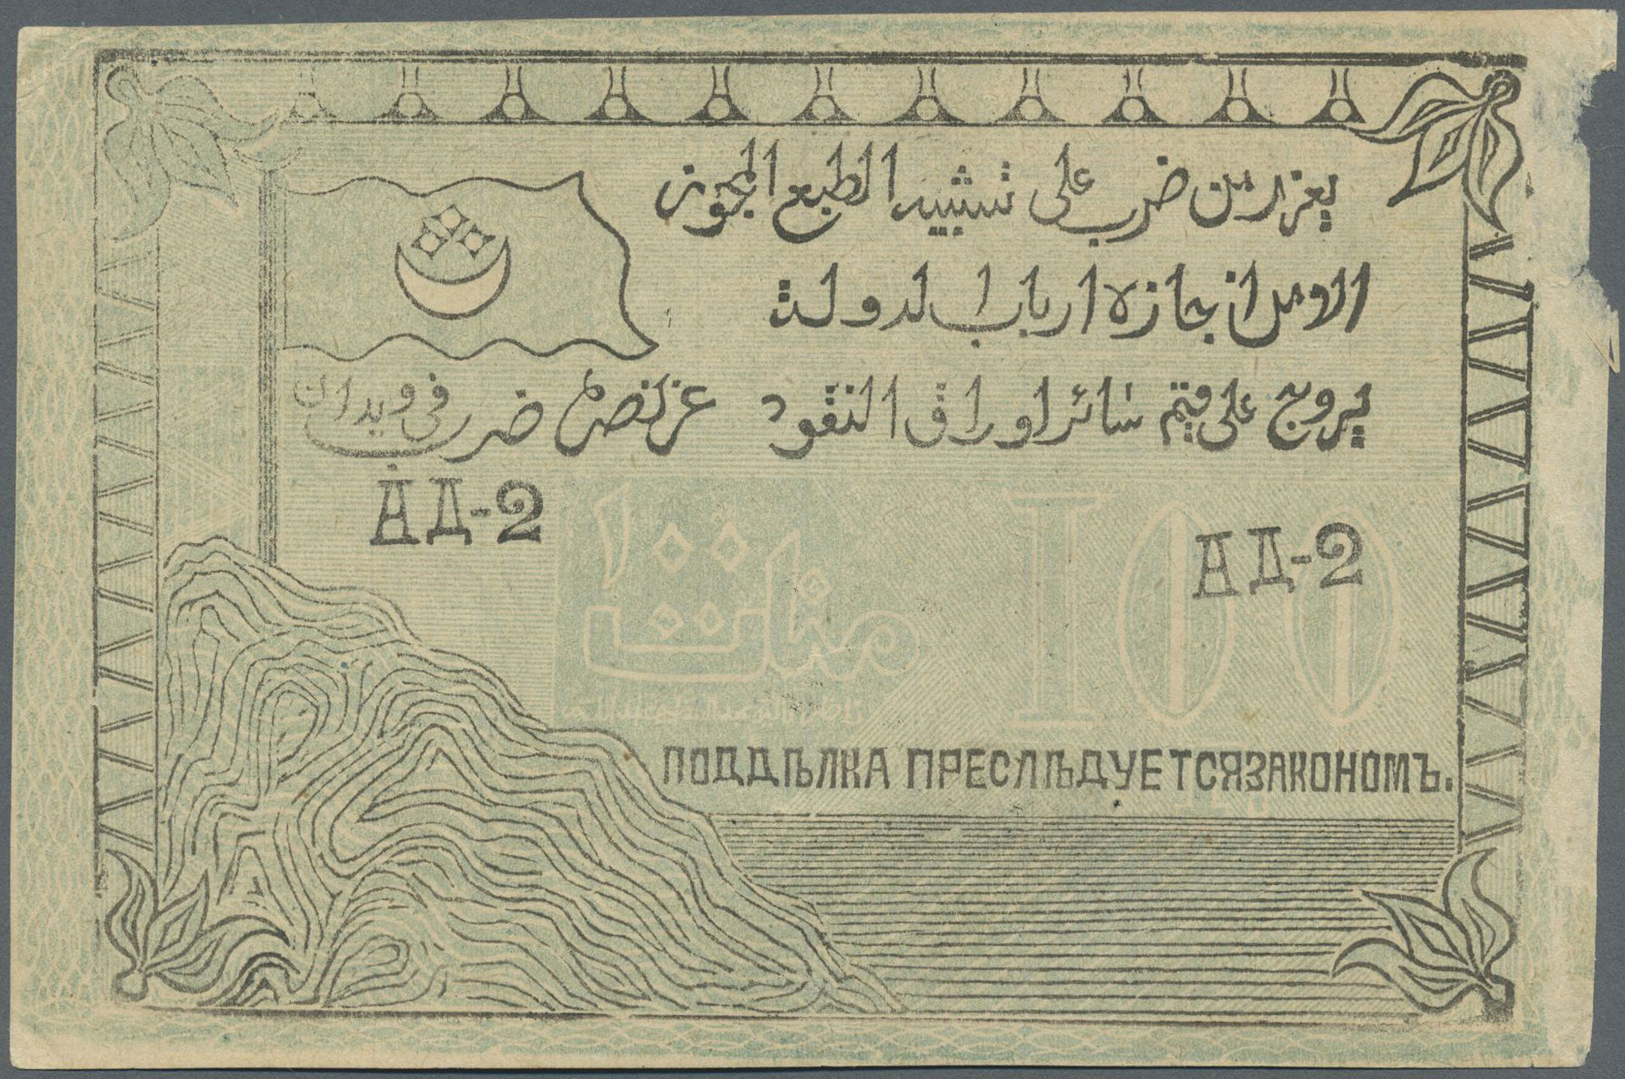 يعزر من ضرب على تشبيه الطبع المجوز
الا من اجازه ارباب الدولة
يروج على قيم سائر اوراق النقود
ضرب في ويدان
АД-2
АД-2
١٠٠
منات
100
ПОДДѢЛКА ПРЕСЛѢДУЕТСЯЗАКОНОМЪ.